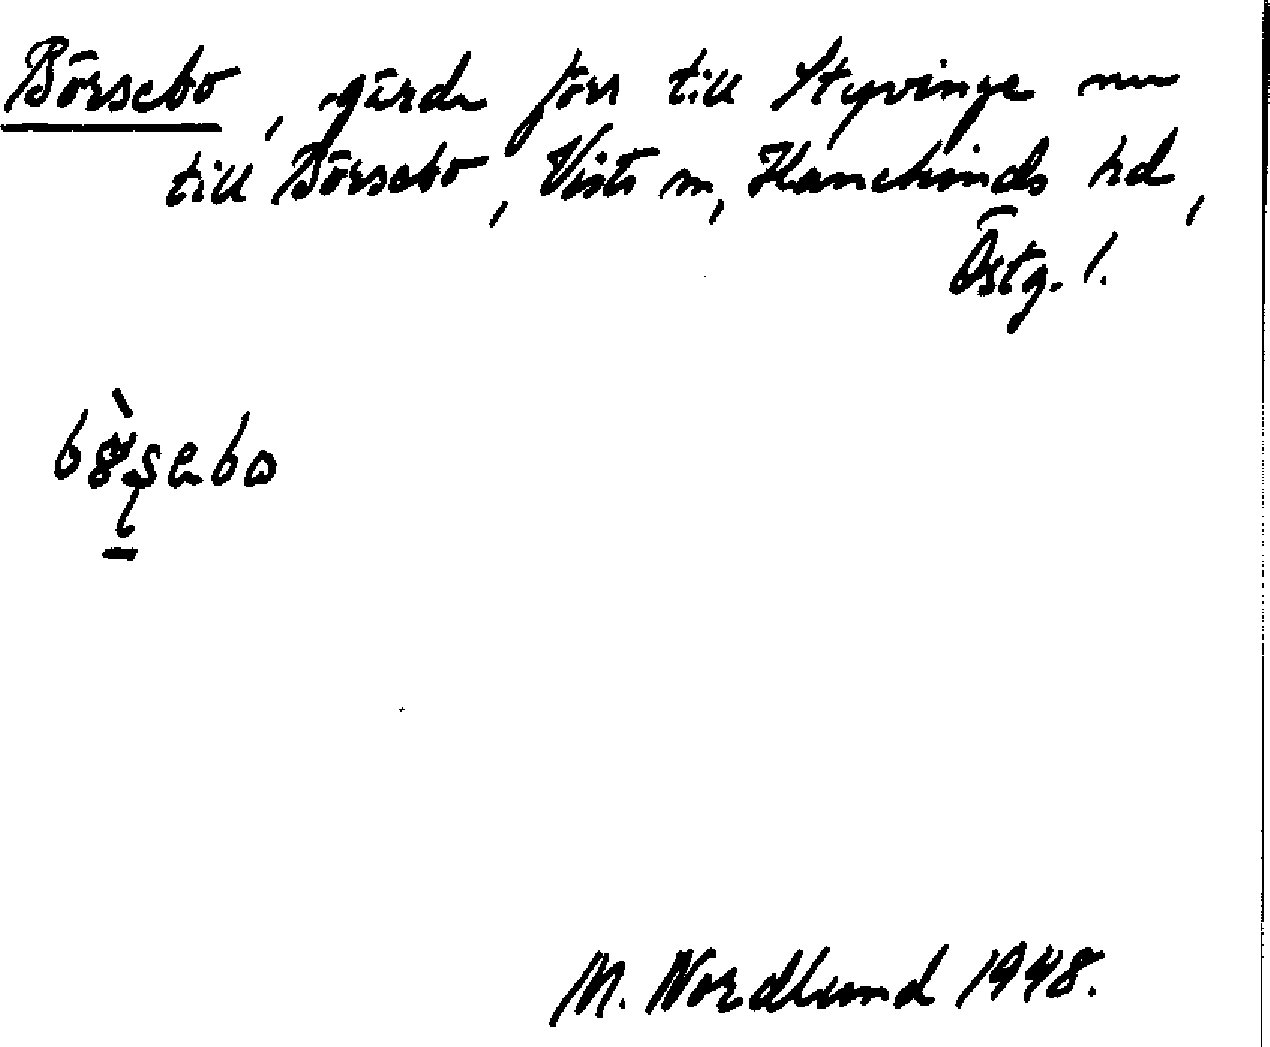 Börsebo, gärde förr till Styvinge nu
till Börsebo, Viste sn, Hanekinds hd,
Östg. l.
M. Nordlund 1948.